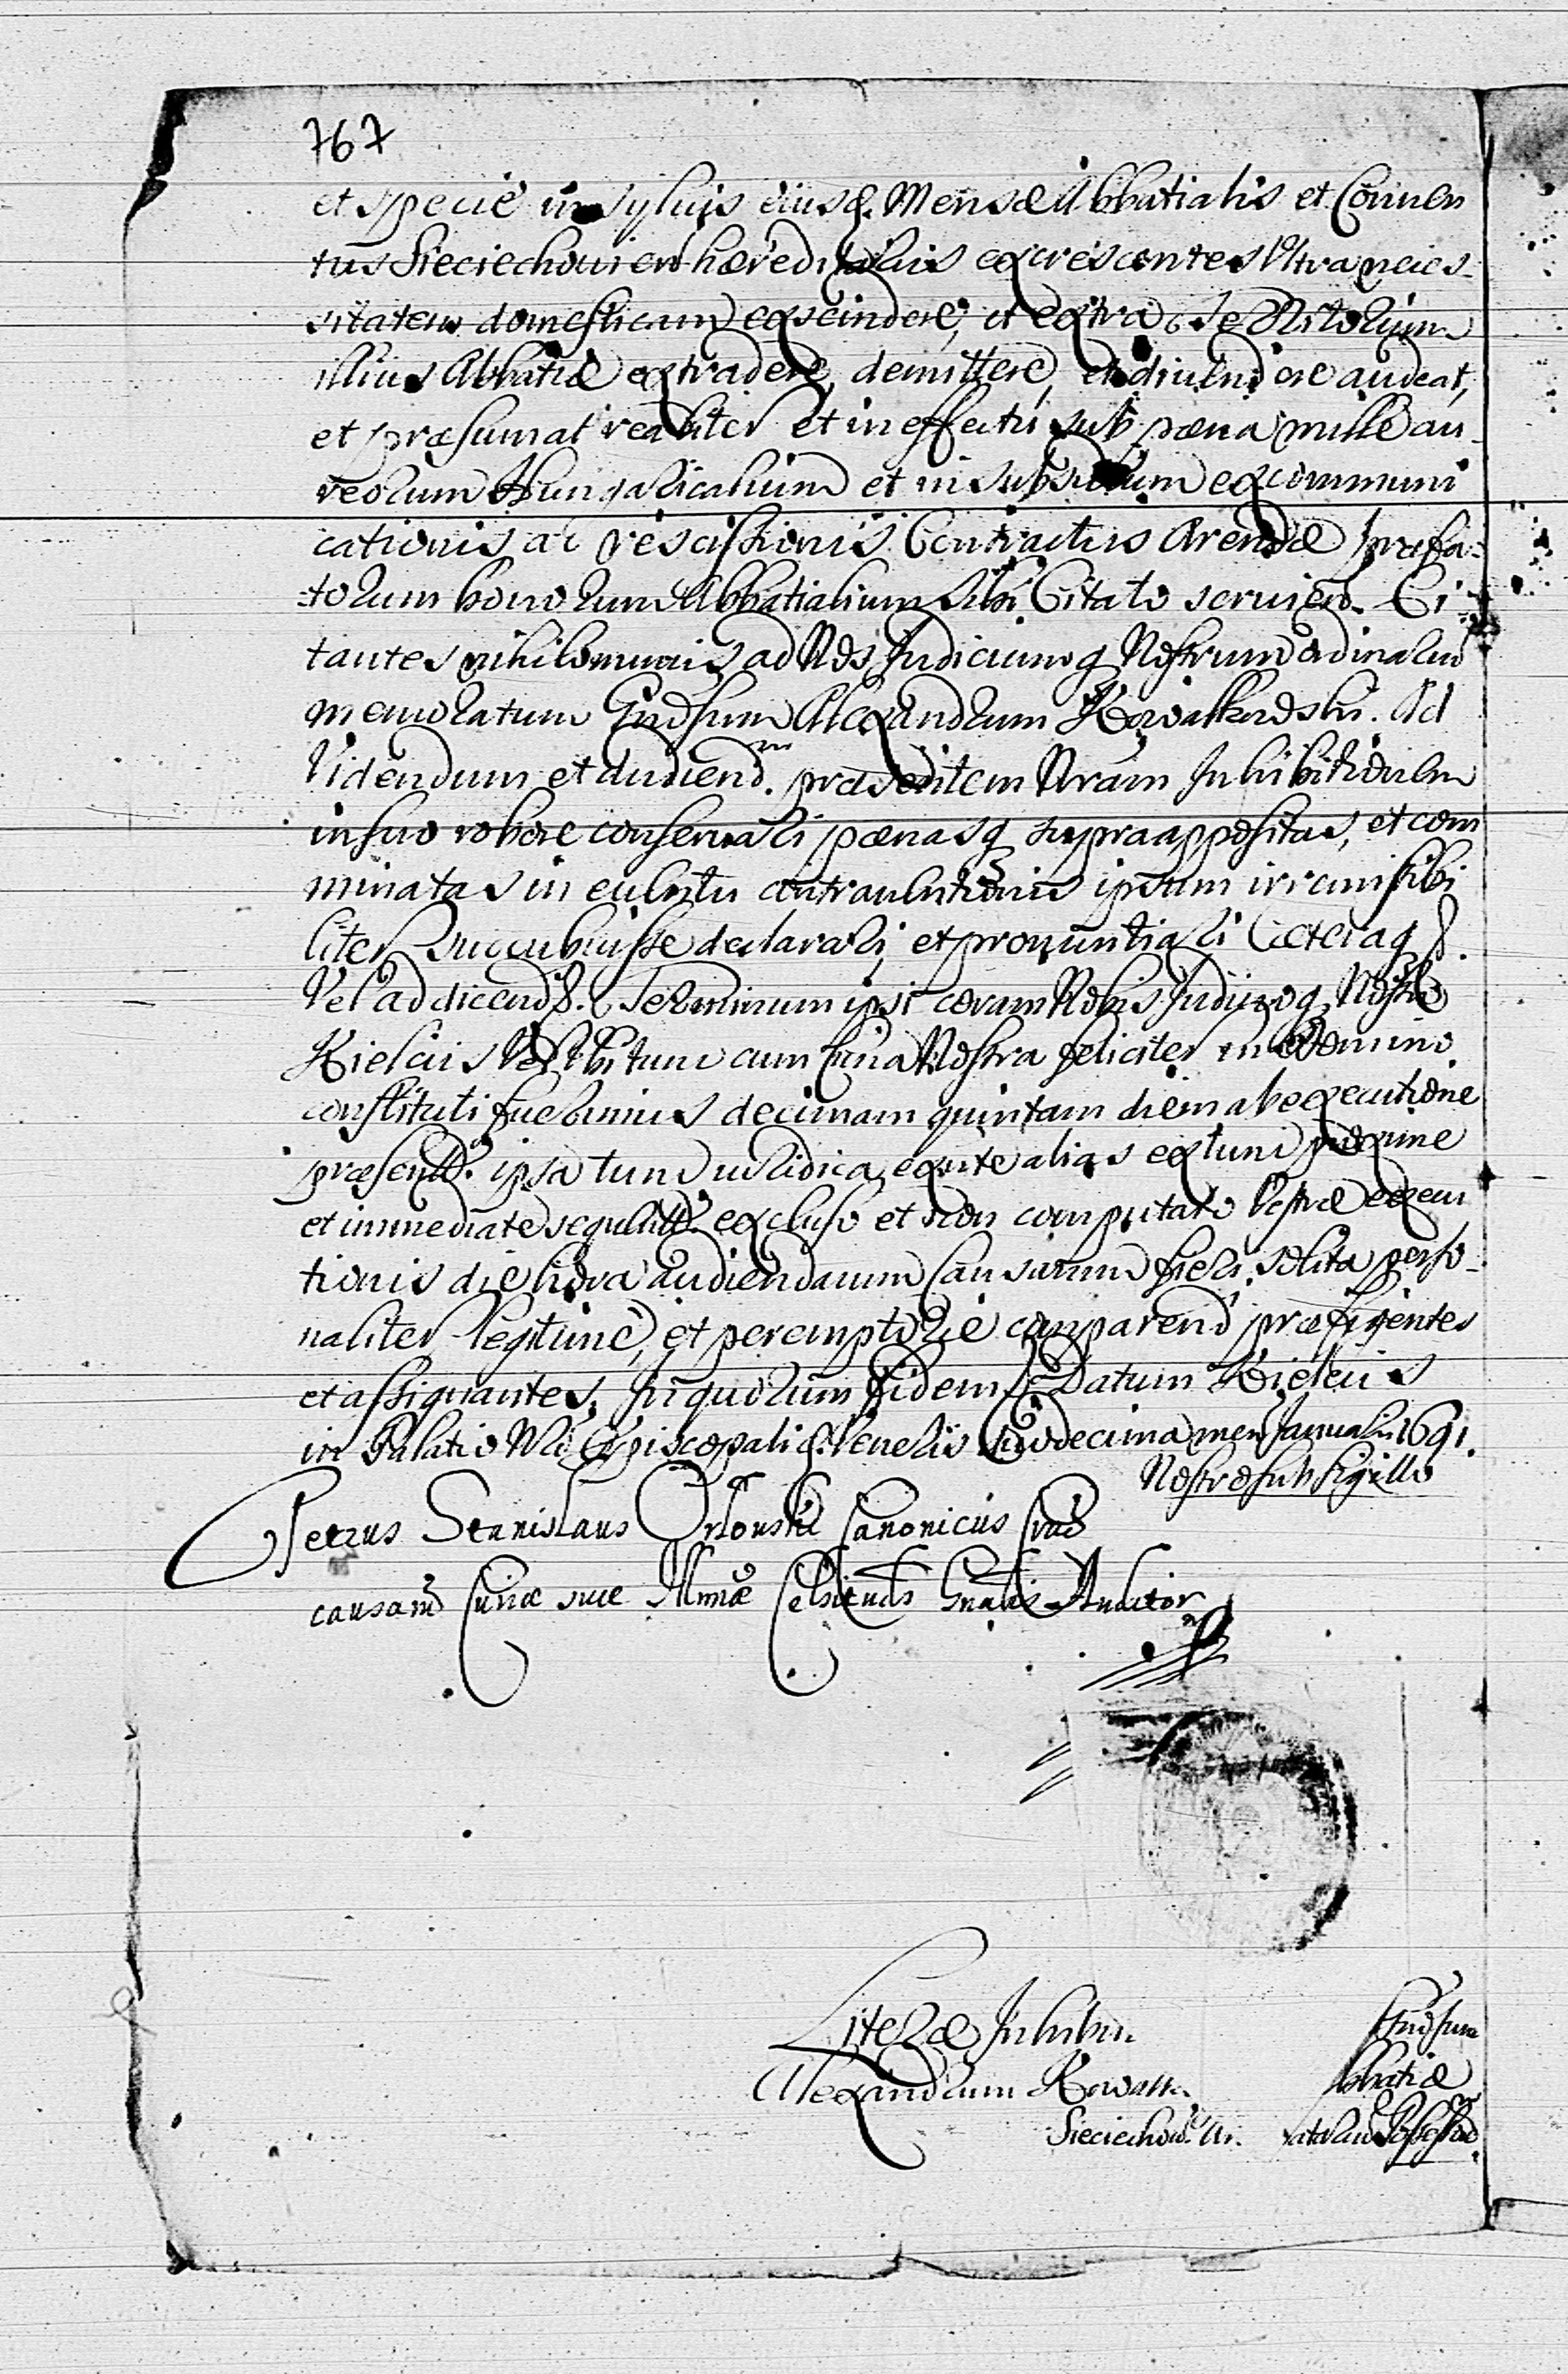 767
et specie in sylvis eiusd. Mensæ Abbatialis et Conven
tus Sieciechovien hæreditariis excrescentes Ultra neces-
sitatem domesticam exscindere, et extra Territorium
illius Abbatiæ extradere, demittere, et divendere audeat,
et præsumat realiter et in effectu sub pæna mille au-
reorum Hungaricalium et in subsidium excommuni
cationis ac rescissionis Contractus Arendæ præfa-
-torum bonorum Abbatialium sibi Citato servien. Ci-
tantes nihilominus ad Nos Judiciumq Nostrum ordinarium
memoratum Gndsum Alexandrum Kowalkowski. Ad
Videndum et audiend.m præsentem Nram Inhibitionem
in suo robore conservari pænasq supra appositas, et com
minatas in eventu contraventionis ipsum irremissibi
liter succubuisse declarari, et pronuntiari Cæteraq
Vel ad dicend. Terminum ipsi coram Nobis Judicioq Nostro
Kielciis Vel Ubi tum cum Curia Nostra feliciter in Domino
constituti fuerimus decimam quintam diem ab executione
præsent. ipsa tum iuridica exnunc alias extunc proxime
et immediate sequent. excluso et non computato Vestræ execu
tionis die hora audiendarum Causarum fieri solita perso-
naliter legitime, et peremptorie comparend præfigentes
et assignantes. In quorum fidem Datum Kielciis
in Palatio Episcopali die Veneris duodecima men Januarii 1691.
Nostro sub sigillo
Petrus Stanislaus Orłowski Canonicus Crac
causarum Curiæ suæ Illmæ Celsitudis Gnalis Auditor
Literæ Inhibit.
Alexandrum Kowalk.
Sieciechow.